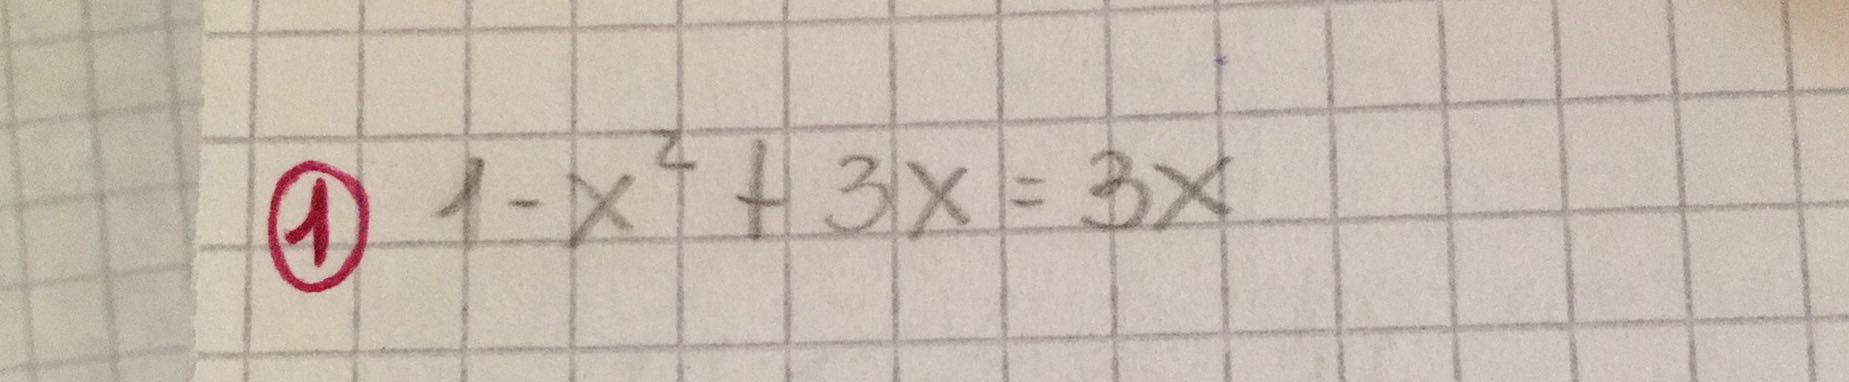 ① 1-x² + 3x = 3x